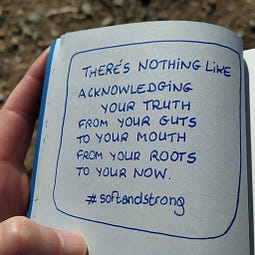 THERE'S NOTHING LIKE
ACKNOWLEDGING
YOUR TRUTH
FROM YOUR GUTS
TO YOUR MOUTH
FROM YOUR ROOTS
TO YOUR NOW.
#softandstrong